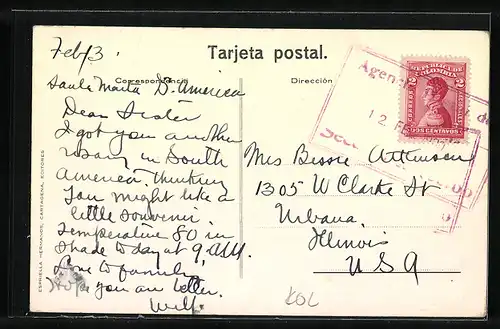 Feb/3.
Tarjeta postal.
Correspondencia
Dirección
Santa Marta S. America
Dear Sister
I got you another
rosary in South
America. thinking
you might like a
little souvenir.
Temperature 80 in
shade to day at 9. AM.
Love to family
Hope you are better.
Wilf.
REPUBLICA DE
COLOMBIA
2 2
CORREOS
NACIONALES
DOS CENTAVOS
Agen
12
Mrs Bessie Atkinson
1305 W Clarke St
Urbana,
Illinois
USA
KOL
ESPRIELLA HERMANOS, CARTAGENA, EDITORES